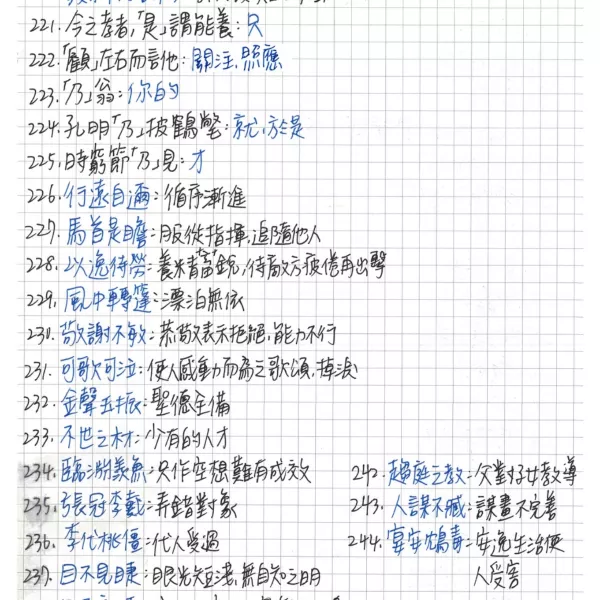 221. 今之孝者,「是」謂能養:只
222.「顧」左右而言他:關注,照應
223.「乃」翁:你的
224. 孔明「乃」披鶴氅:就,於是
225. 時窮節「乃」見:才
226. 行遠自邇:循序漸進
227. 馬首是瞻:服從指揮,追隨他人
228. 以逸待勞:養精蓄銳,待敵方疲憊再出擊
229. 風中轉篷:漂泊無依
230. 敬謝不敏:恭敬表示拒絕,能力不行
231. 可歌可泣:使人感動而為之歌頌,掉淚
232. 金聲玉振:聖德全備
233. 不世之材:少有的人才
234. 臨淵羨魚:只作空想難有成效
235. 張冠李戴:弄錯對象
236. 李代桃僵:代人受過
237. 目不見睫:眼光短淺,無自知之明
242. 趨庭之教:父對子女教導
243. 人謀不臧:謀畫不完善
244. 宴安鴆毒:安逸生活使
人受害